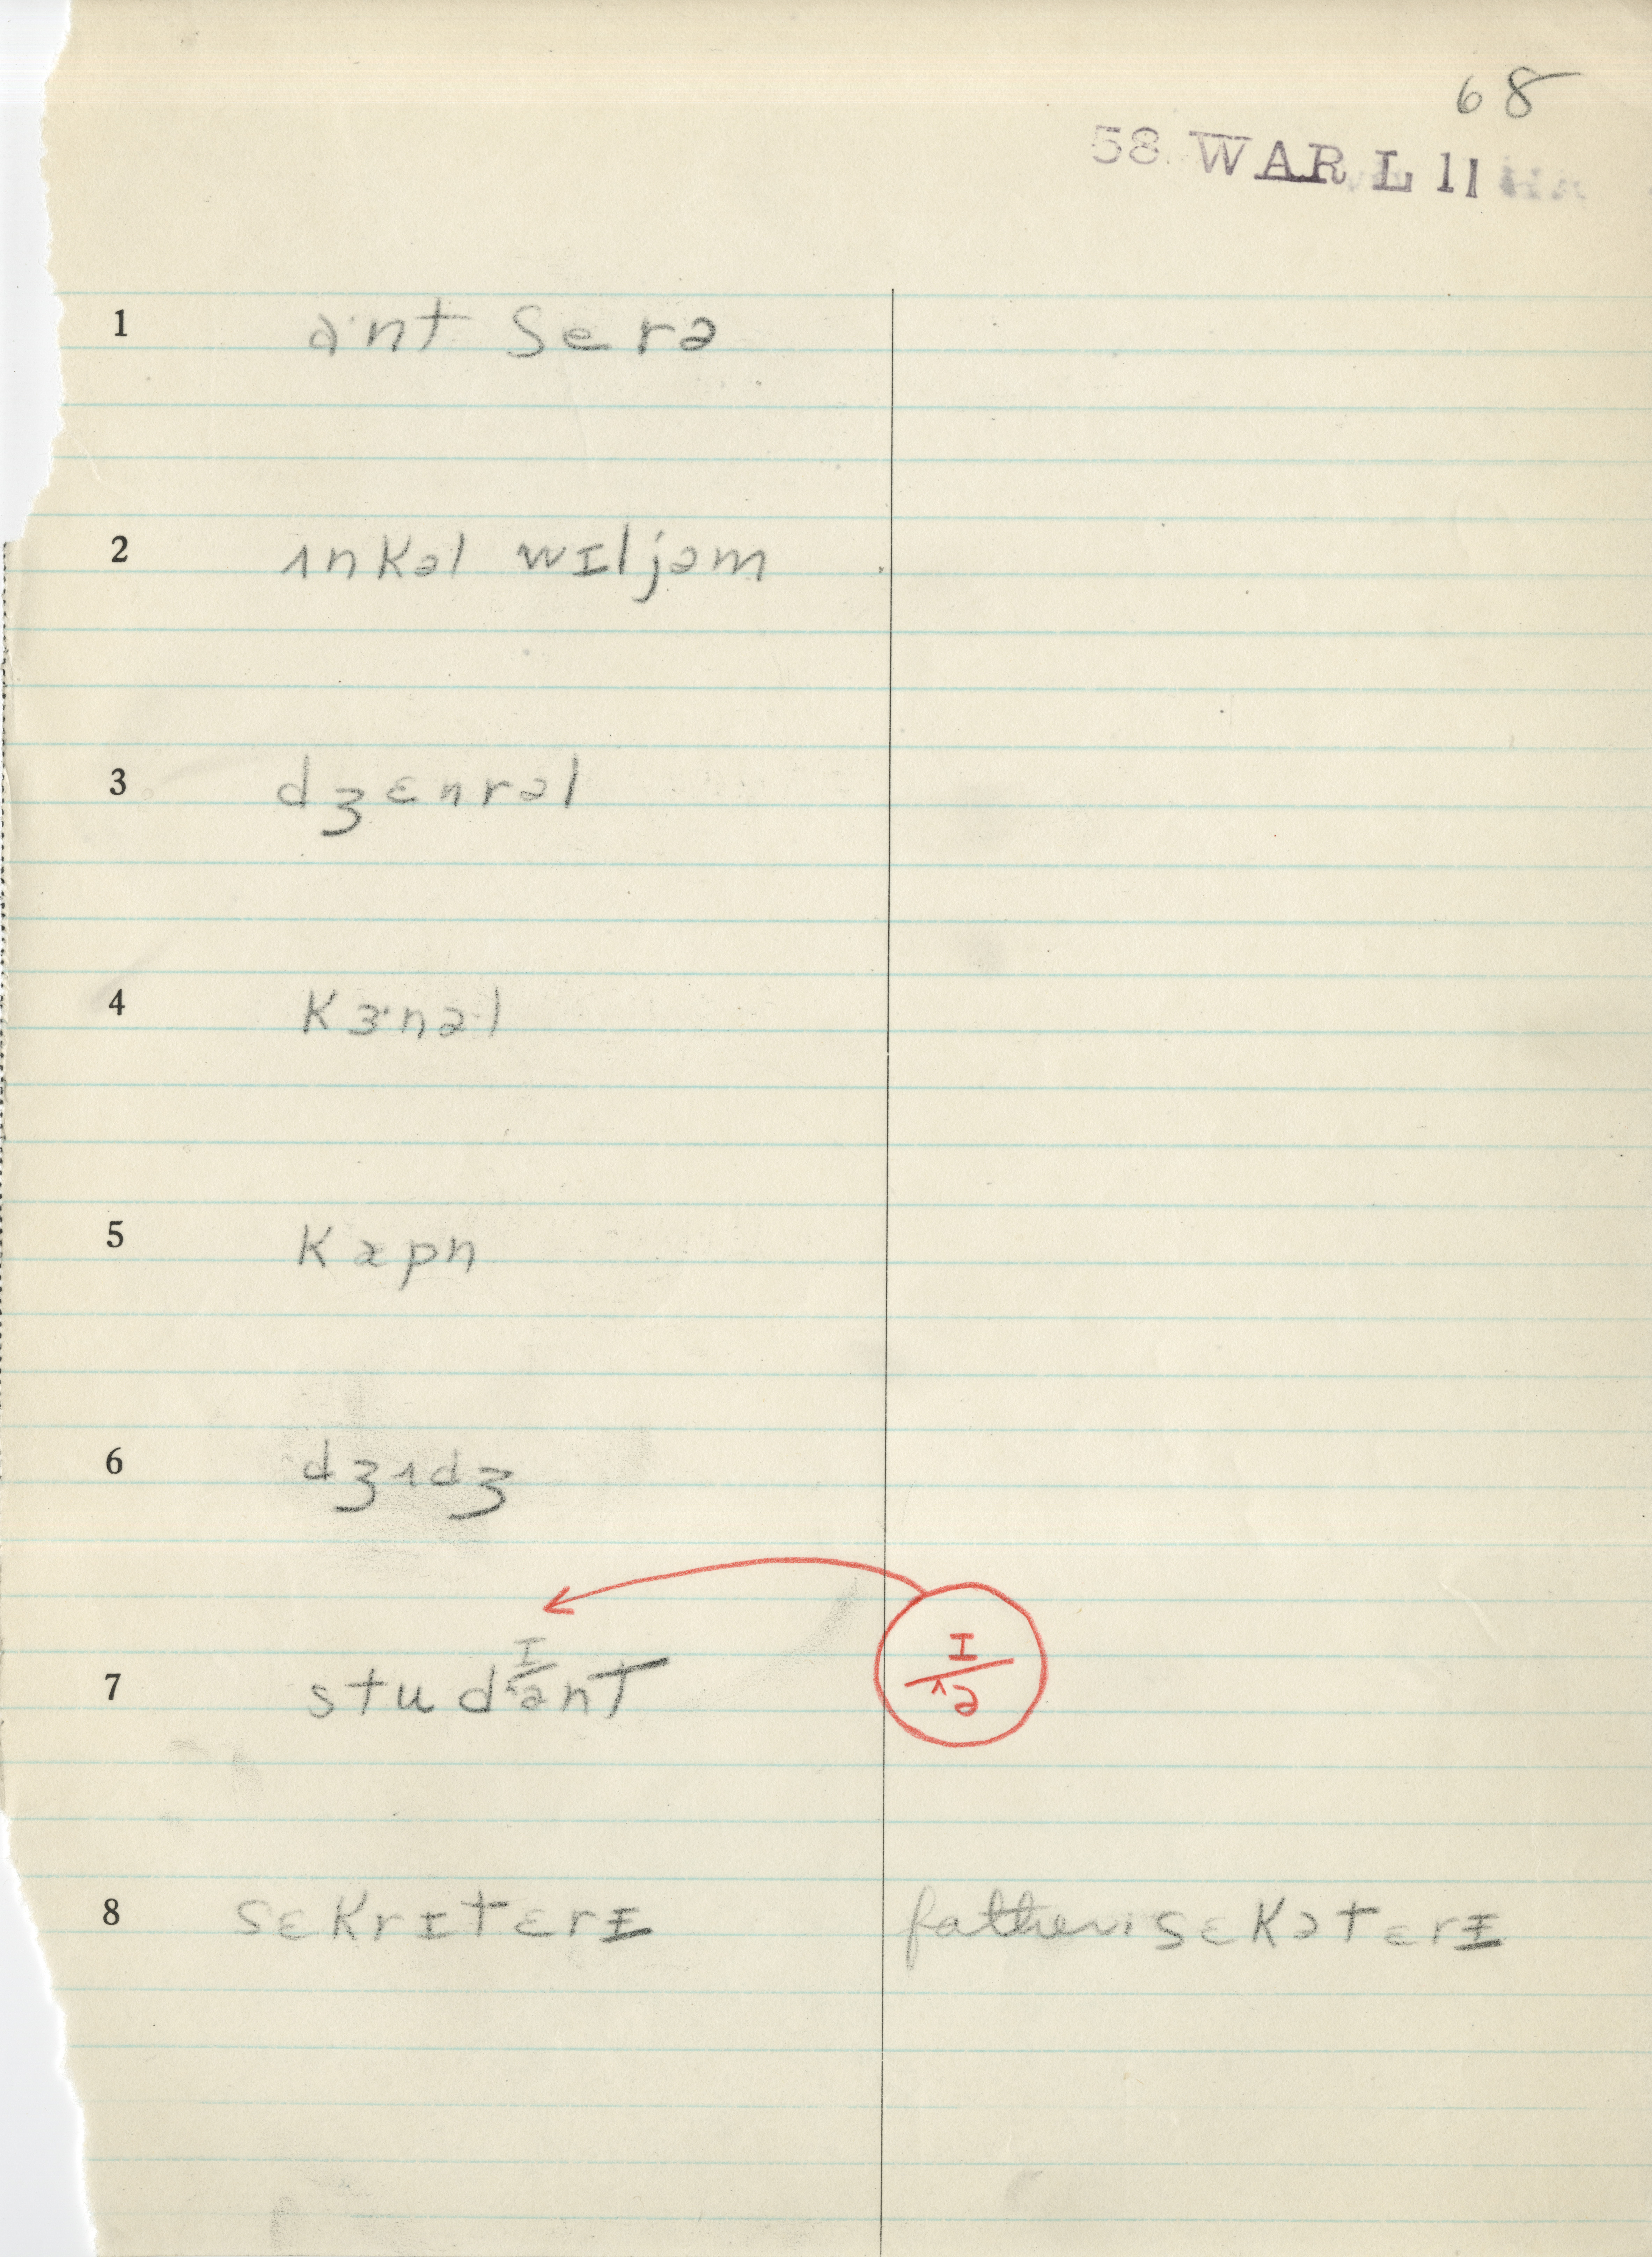 68
58 WAR L 11
1 ɑˑnt serə
2 ʌnkəl wɪljəm
3 dʒɛnrəl
4 kɜˑnəl
5 kæpn
6 dʒʌdʒ
7 studɪ/^ənt ɪ/^ə
8 sɛkrɪtɛrɪ father: sɛkətɛrɪ